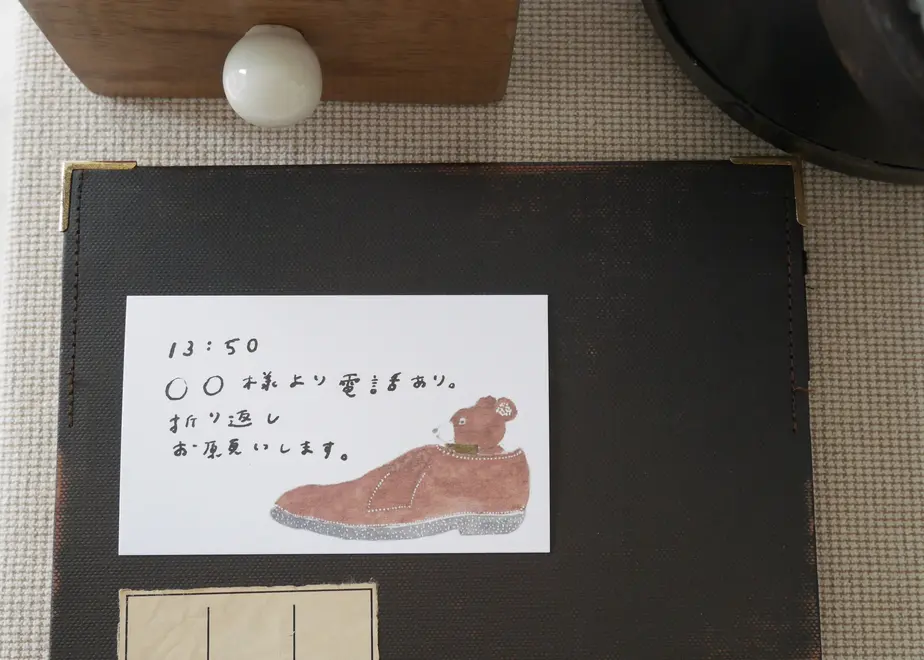 13:50
○○様より電話あり。
折り返し
お願いします。